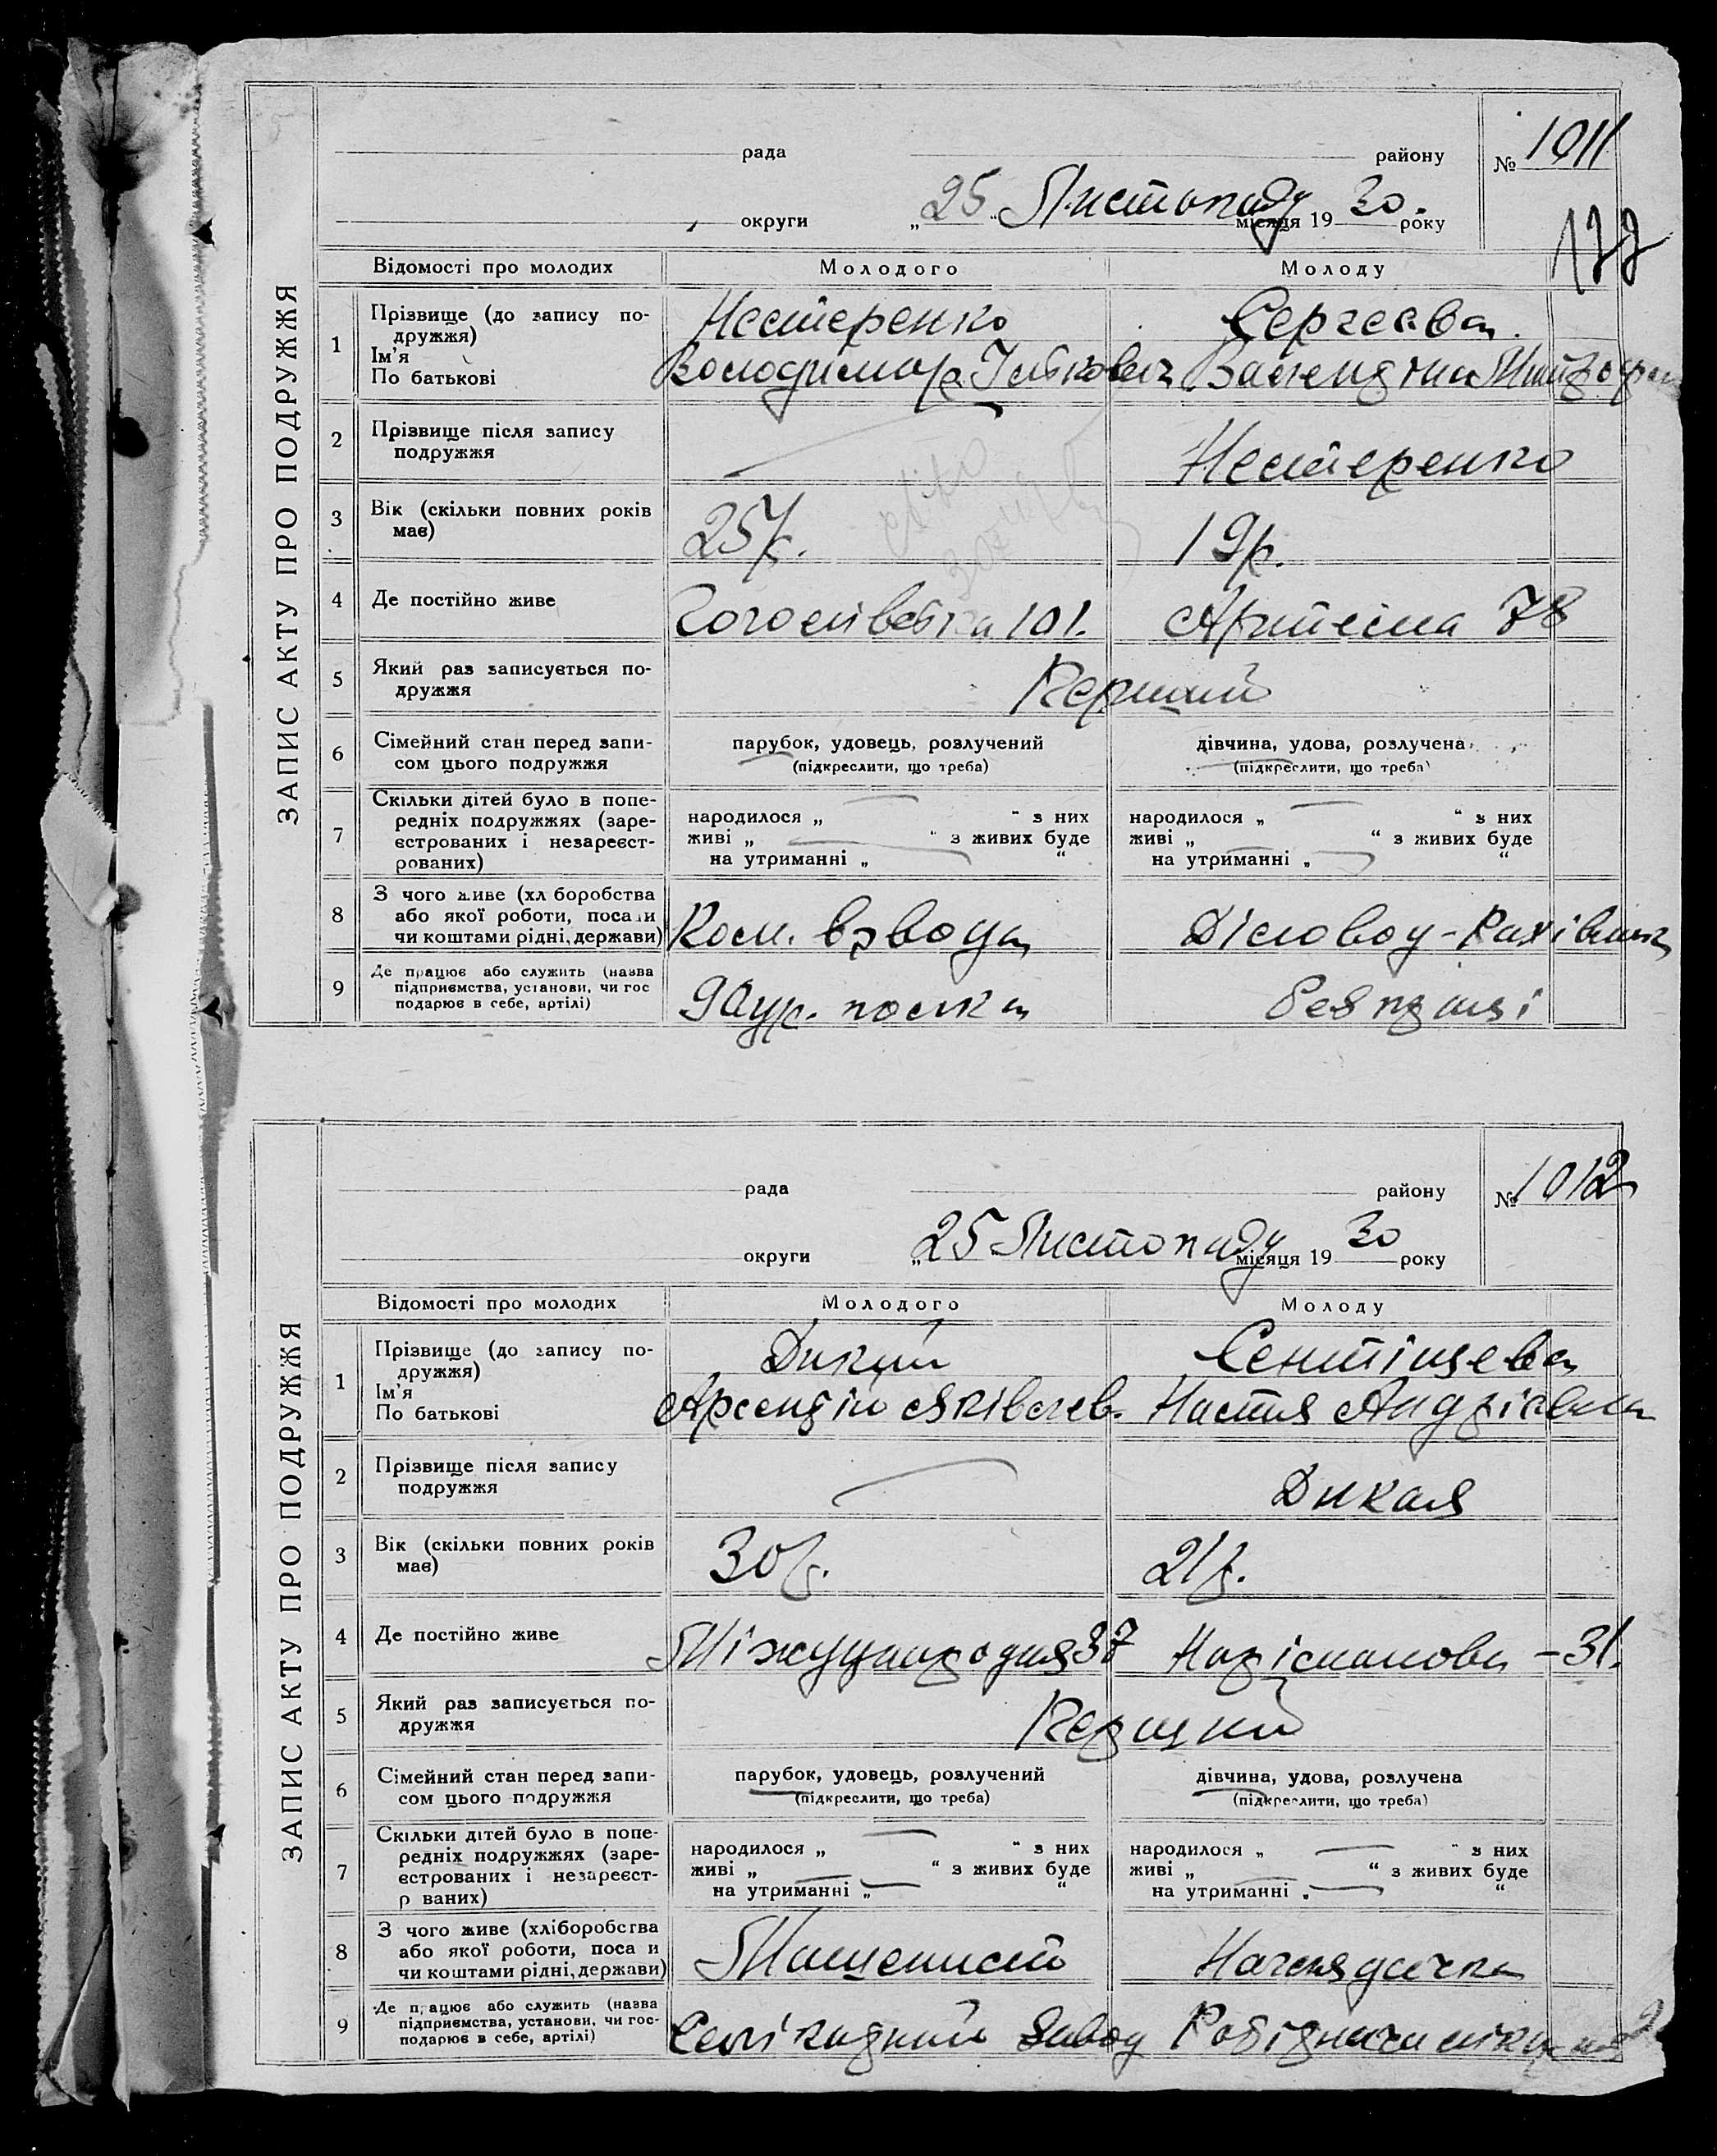 ЗАПИС АКТУ ПРО ПОДРУЖЖЯ
рада району № 1011
округи „25“ Листопаду місяця 1930. року
Відомості про молодих Молодого Молоду
1 Прізвище (до запису по-
дружжя)
Ім'я
По батькові
Нестеренко Сергеева
Володимир Валентина
2 Прізвище після запису
подружжя
Нестеренко
3 Вік (скільки повних років
має)
25р. 19р.
4 Де постійно живе
Гоголівська 101. Артема 78
5 Який раз записується по-
дружжя
Перший
6 Сімейний стан перед запи-
сом цього подружжя
парубок, удовець, розлучений дівчина, удова, розлучена
(підкреслити, що треба) (підкреслити, що треба)
7 Скільки дітей було в попе-
редніх подружжях (заре-
єстрованих і незареєст-
рованих)
народилося „ “ з них народилося „ “ з них
живі „ “ з живих буде живі „ “ з живих буде
на утриманні „ “ на утриманні „ “
8 З чого живе (хл боробства
або якої роботи, поса и
чи коштами рідні, держави)
Ком. взвода Діловод-Рахівниц
9 Де працює або служить (назва
підприємства, установи, чи гос
подарює в себе, артілі)
полка
ЗАПИС АКТУ ПРО ПОДРУЖЖЯ
рада району № 1012
округи „25 Листопаду місяця 1930 року
Відомості про молодих Молодого Молоду
1 Прізвище (до запису по-
дружжя)
Ім'я
По батькові
Дикий
Арсентій Яківлев. Настя Андріевна
2 Прізвище після запису
подружжя
Дикая
3 Вік (скільки повних років
має)
30р. 21р.
4 Де постійно живе
Міжународня 37 Наріманова - 31.
5 Який раз записується по-
дружжя
Перший
6 Сімейний стан перед запи-
сом цього подружжя
парубок, удовець, розлучений дівчина, удова, розлучена
(підкреслити, що треба) (підкреслити, що треба)
7 Скільки дітей було в попе-
редніх подружжях (заре-
єстрованих і незареєст-
р ваних)
народилося „ “ з них народилося „ “ з них
живі „ “ з живих буде живі „ “ з живих буде
на утриманні „ “ на утриманні „ “
8 З чого живе (хліборобства
або якої роботи, поса и
чи коштами рідні, держави)
Машенист Наглядачка
9 Де п ацює або служить (назва
підприємства, установи, чи гос-
подарює в себе, артілі)
Силікатний завод Робітнича